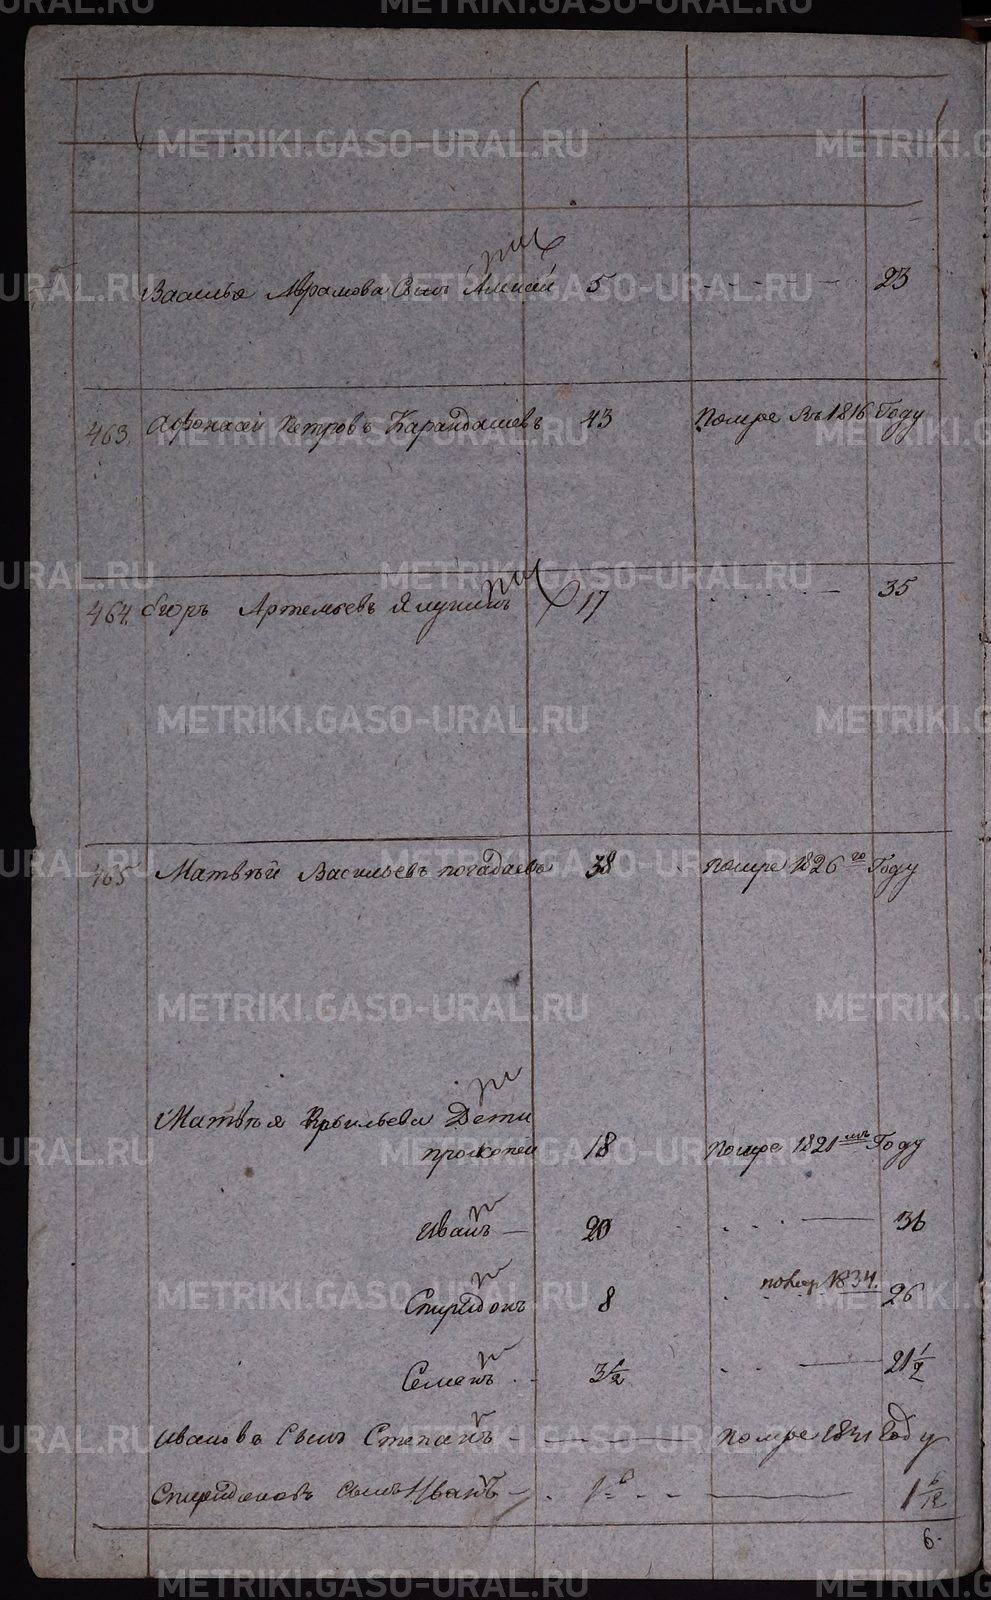 METRIKI.GASO-URAL.RU
Василья Аврамова Сынъ Алексей 5 23
463. Афонасей Петровъ Карандашевъ 43 Помре Въ 1816 Году
464. Егоръ Артемьевъ Ялунинъ 17 35
465 Матвѣй Васильевъ погадаевъ 38 помре 1826 го Году
Матвѣя Дети
прокопей 18 Помре 1821 мъ Году
Иванъ 20 36
Спиридонъ 8 1834. 26
Семенъ 3 1/2 21 1/2
Ивановъ Сынъ Степанъ Помре 1831 Году
Спиридоновъ сынъ Иванъ
6.